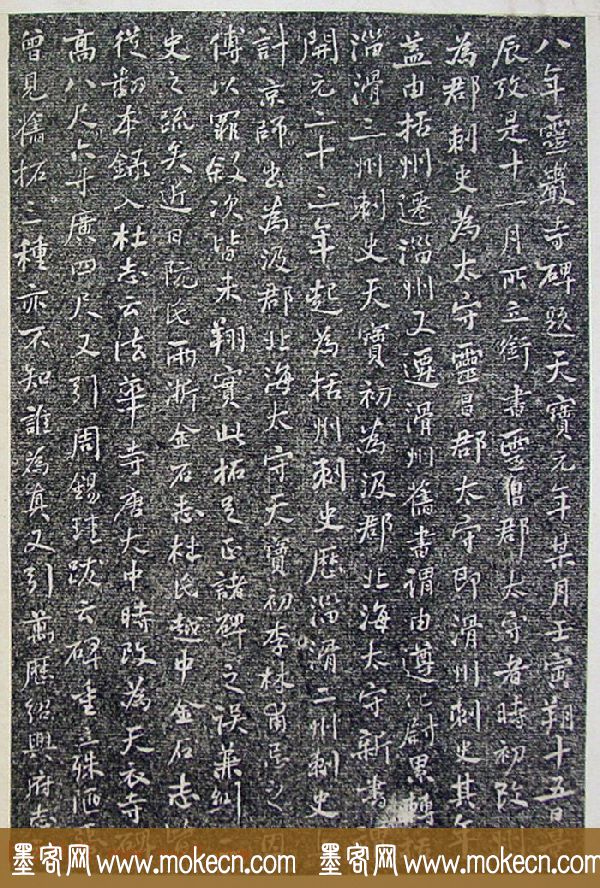 八年靈巖寺碑題天寶元年某月壬寅朔十五日
辰攷是十一月所立銜書靈昌郡太守者時初改
為郡刺史為太守靈昌郡太守即滑州刺史其年
蓋由括州遷淄州又遷滑州舊書謂由遵化尉累轉括
淄滑三州刺史天寶初為汲郡北海太守新書謂
開元二十三年起為括州刺史歷淄滑二州刺史
計京師出為汲郡北海太守天寶初李林甫忌之因
傅以罪敘次皆未翔實此拓足正諸碑之誤兼糾
史之疏矣近日阮氏兩浙金石志杜氏越中金石志
從翻本錄入杜志云法華寺唐大中時改為天衣寺碑
高八尺六寸廣四尺又引周錫珪跋云碑重立殊陋
曾見舊拓二種亦不知誰為真又引萬歷紹興府志
墨客网 www.mokecn.com 墨客网 www.mokecn.com